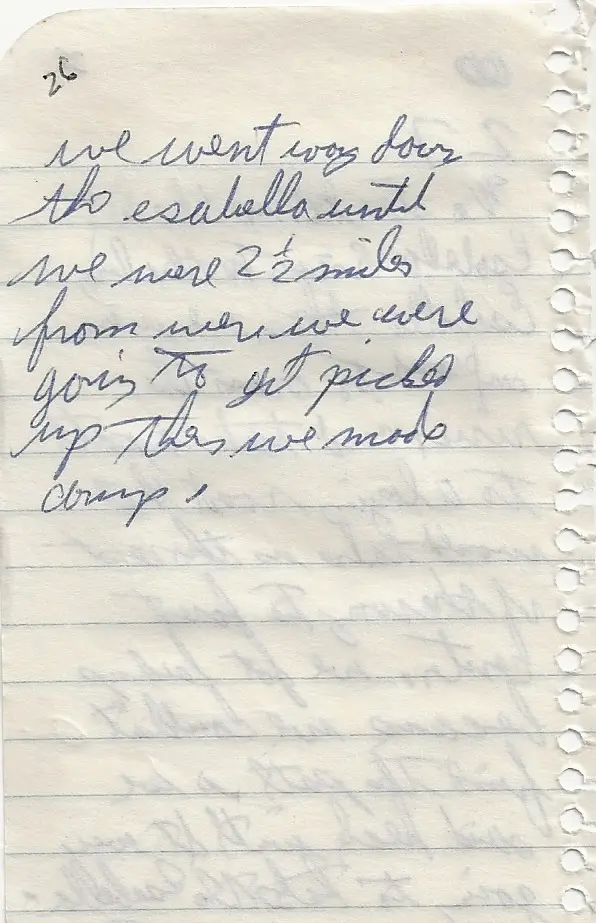 26
we went way down
the esabella until
we were 2 1/2 miles
from were we were
going to get picked
up then we made
camp.